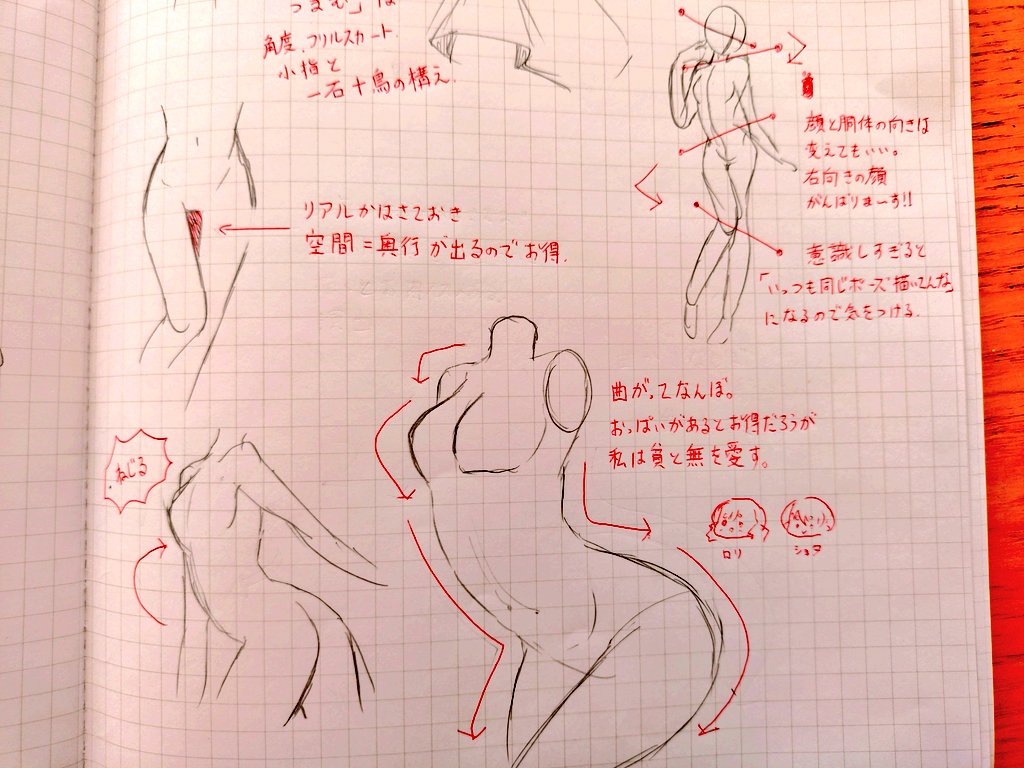 つまむ」は
角度、フリルスカート
小指と
一石十鳥の構え.
顔と胴体の向きは
変えてもいい。
右向きの顔
がんばりまーす!!
リアルかはさておき
空間=奥行が出るのでお得.
意識しすぎると
「いっつも同じポーズ描いてんな」
になるので気をつける.
曲がってなんぼ。
おっぱいがあるとお得だろうが
私は貧と無を愛す。
ねじる
ロリ
ショタ